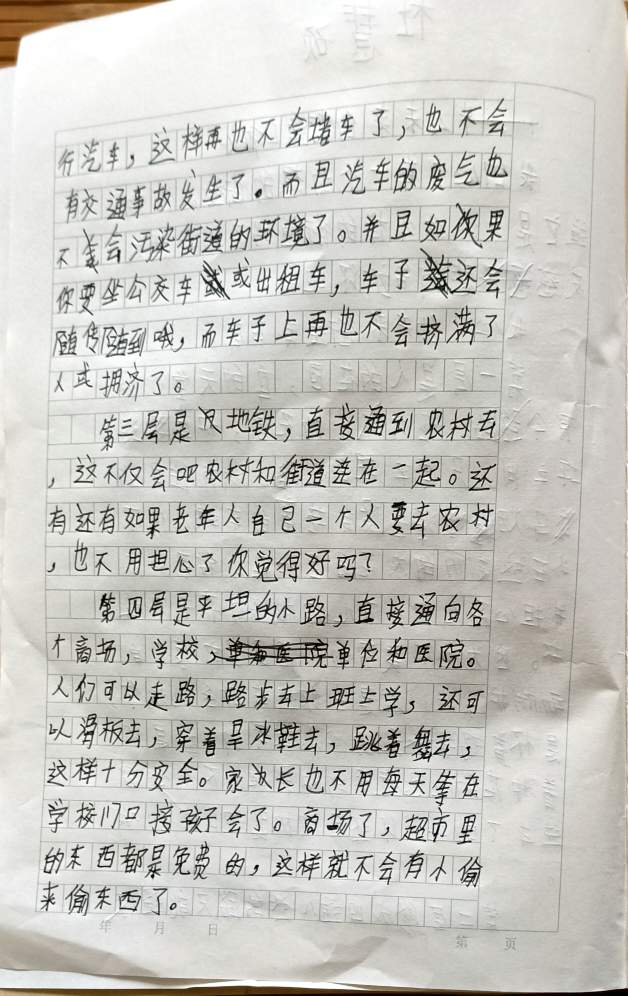 行汽车，这样再也不会堵车了，也不会
有交通事故发生了。而且汽车的废气也
不会污染街道的环境了。并且如果
你要坐公交车或出租车，车子还会
随传随到哦，而车子上再也不会挤满了
人或拥济了。
第三层是地铁，直接通到农村去
，这不仅会吧农村和街道连在一起。还
有还有如果老年人自己一个人要去农村
，也不用担心了你觉得好吗？
第四层是平坦的小路，直接通向各
个商场，学校，单位和医院。
人们可以走路，路步去上班上学，还可
以滑板去，穿着旱冰鞋去，跳着舞去，
这样十分安全。家长也不用每天等在
学校门口接孩子会了。商场了，超市里
的东西都是免费的，这样就不会有小偷
来偷东西了。
年 月 日
第 页